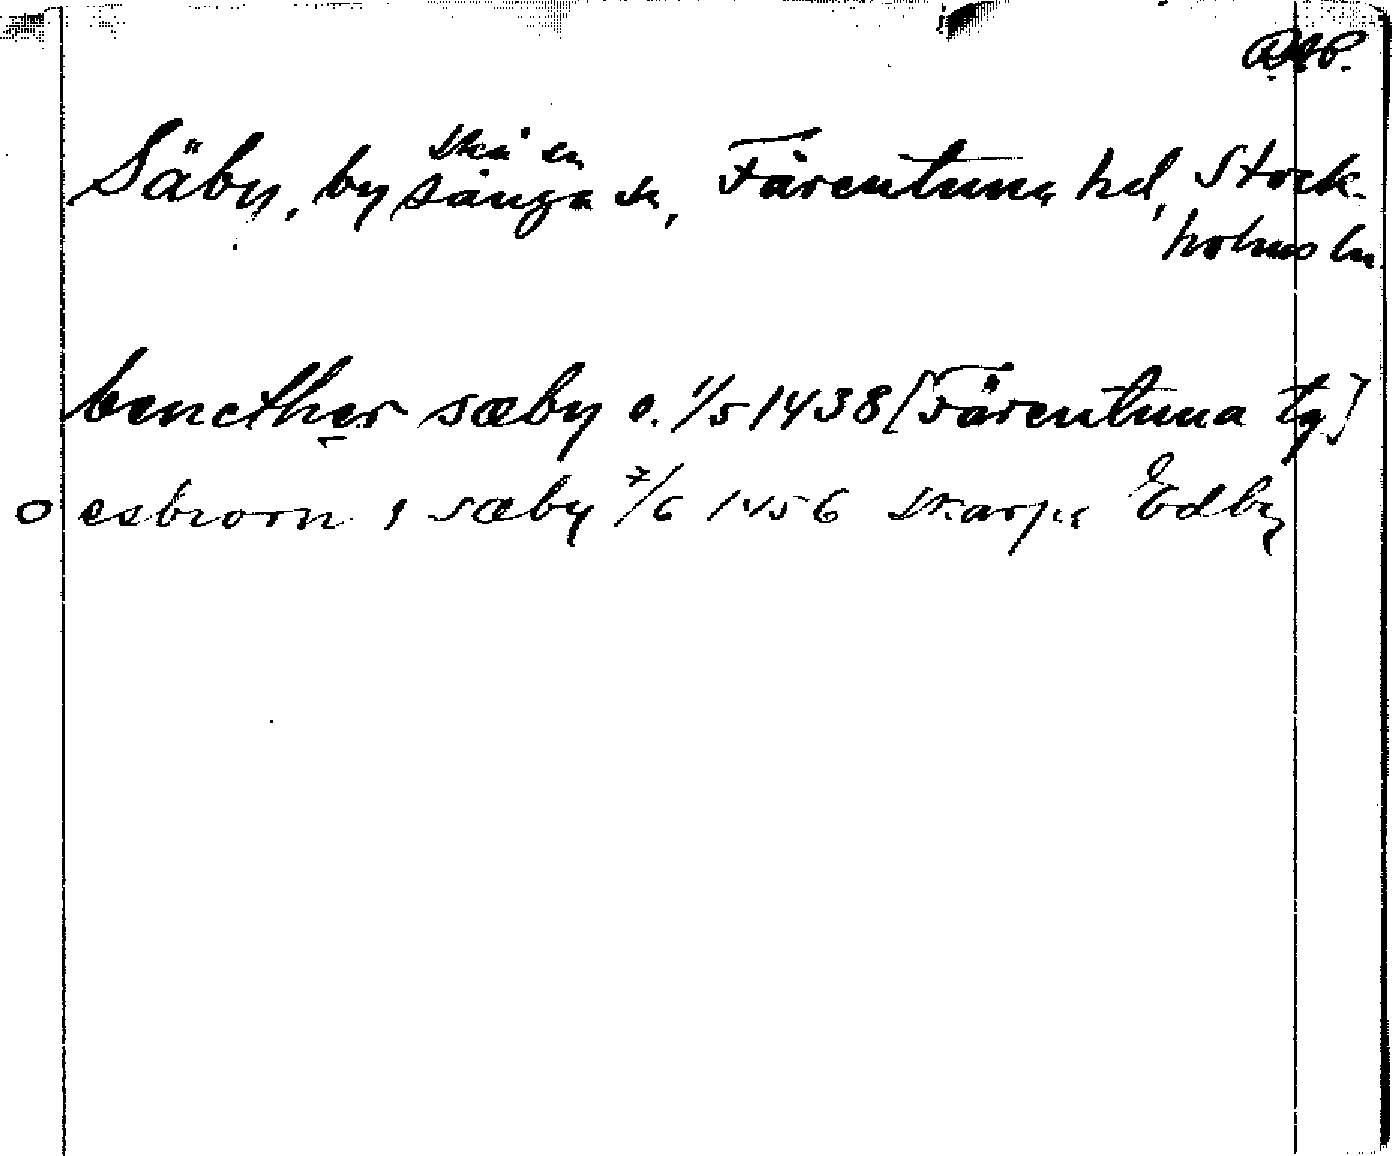 Säby, by Skå sn Sånga sn, Färentuna hd, Stock-
holms ln.
benether sæby o. 1/5 1438 [Färentuna tg]
o esbiorn i sæby 7/6 1456 Skarpa Edby